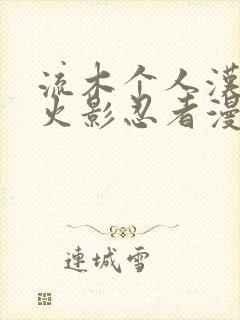 流木个人漢
火影忍者漫
連城雪